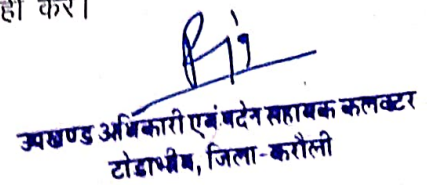 ही करें।
उपखण्ड अधिकारी एवं पदेन सहायक कलक्टर
टोडाभीम, जिला-करौली